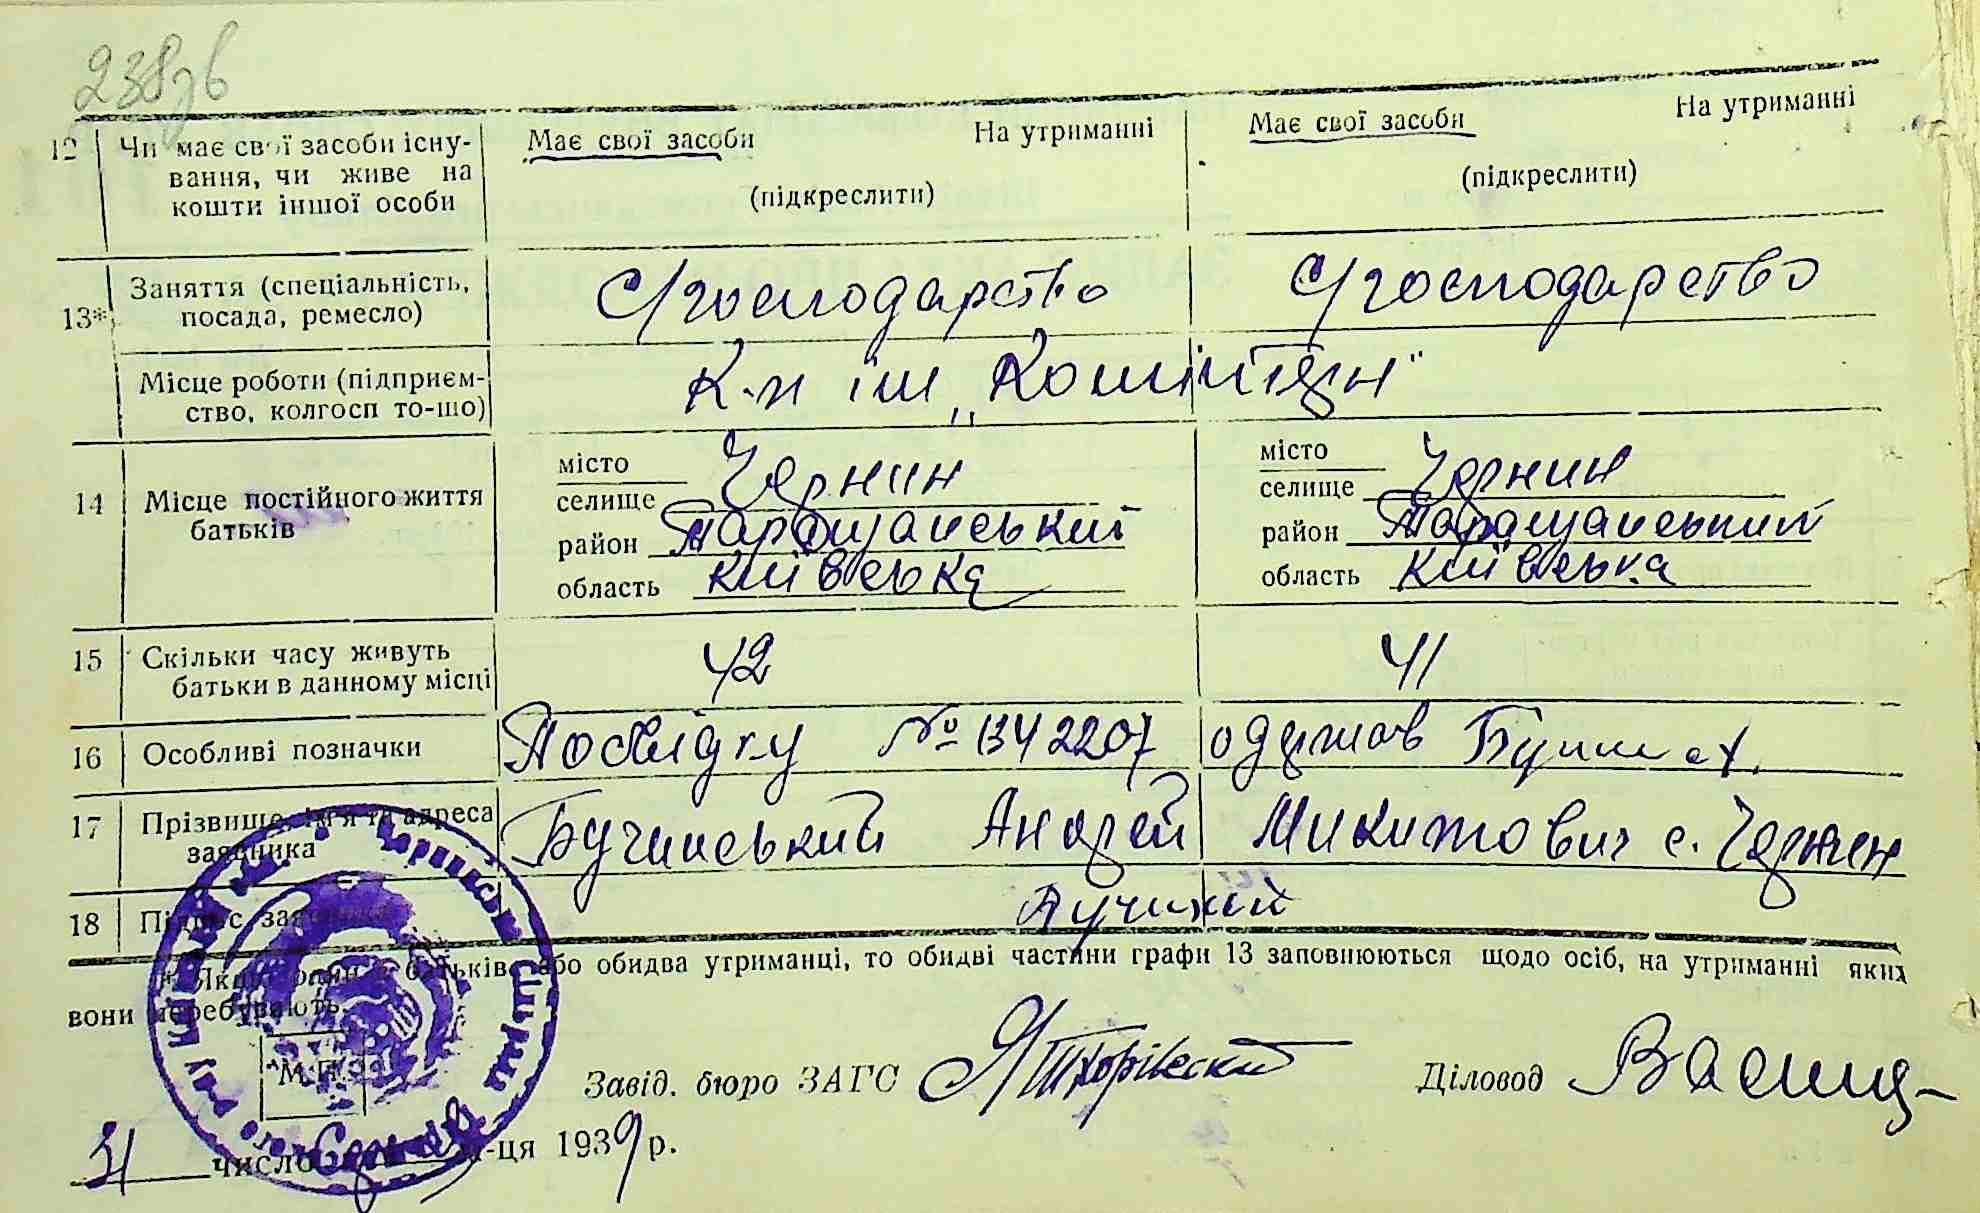 238зв
12 Чи має свої засоби існу-
вання, чи живе на
кошти іншої особи
Має свої засоби На утриманні
(підкреслити)
Має свої засоби На утриманні
(підкреслити)
13* Заняття (спеціальність,
посада, ремесло)
С/господарство С/господарство
Місце роботи (підприєм-
ство, колгосп то-що)
К-п ім „Комінтерн"
14 Місце постійного життя
батьків
місто
селище Чернин
район Таращанський
область Київська
місто
селище Чернин
район Таращанський
область Київська
15 Скільки часу живуть
батьки в данному місці
42 41
16 Особливі позначки
Посвідку № 1342207 одержав
17 Прізвище, ім'я та адреса
заявника
Бучинський Андрей Микитович с. Чернин
18 Підпис заявника
* Якщо один з батьків або обидва утриманці, то обидві частини графи 13 заповнюються щодо осіб, на утриманні яких
вони перебувають.
М.П.
Завід. бюро ЗАГС Діловод
31 число м-ця 1939 р.